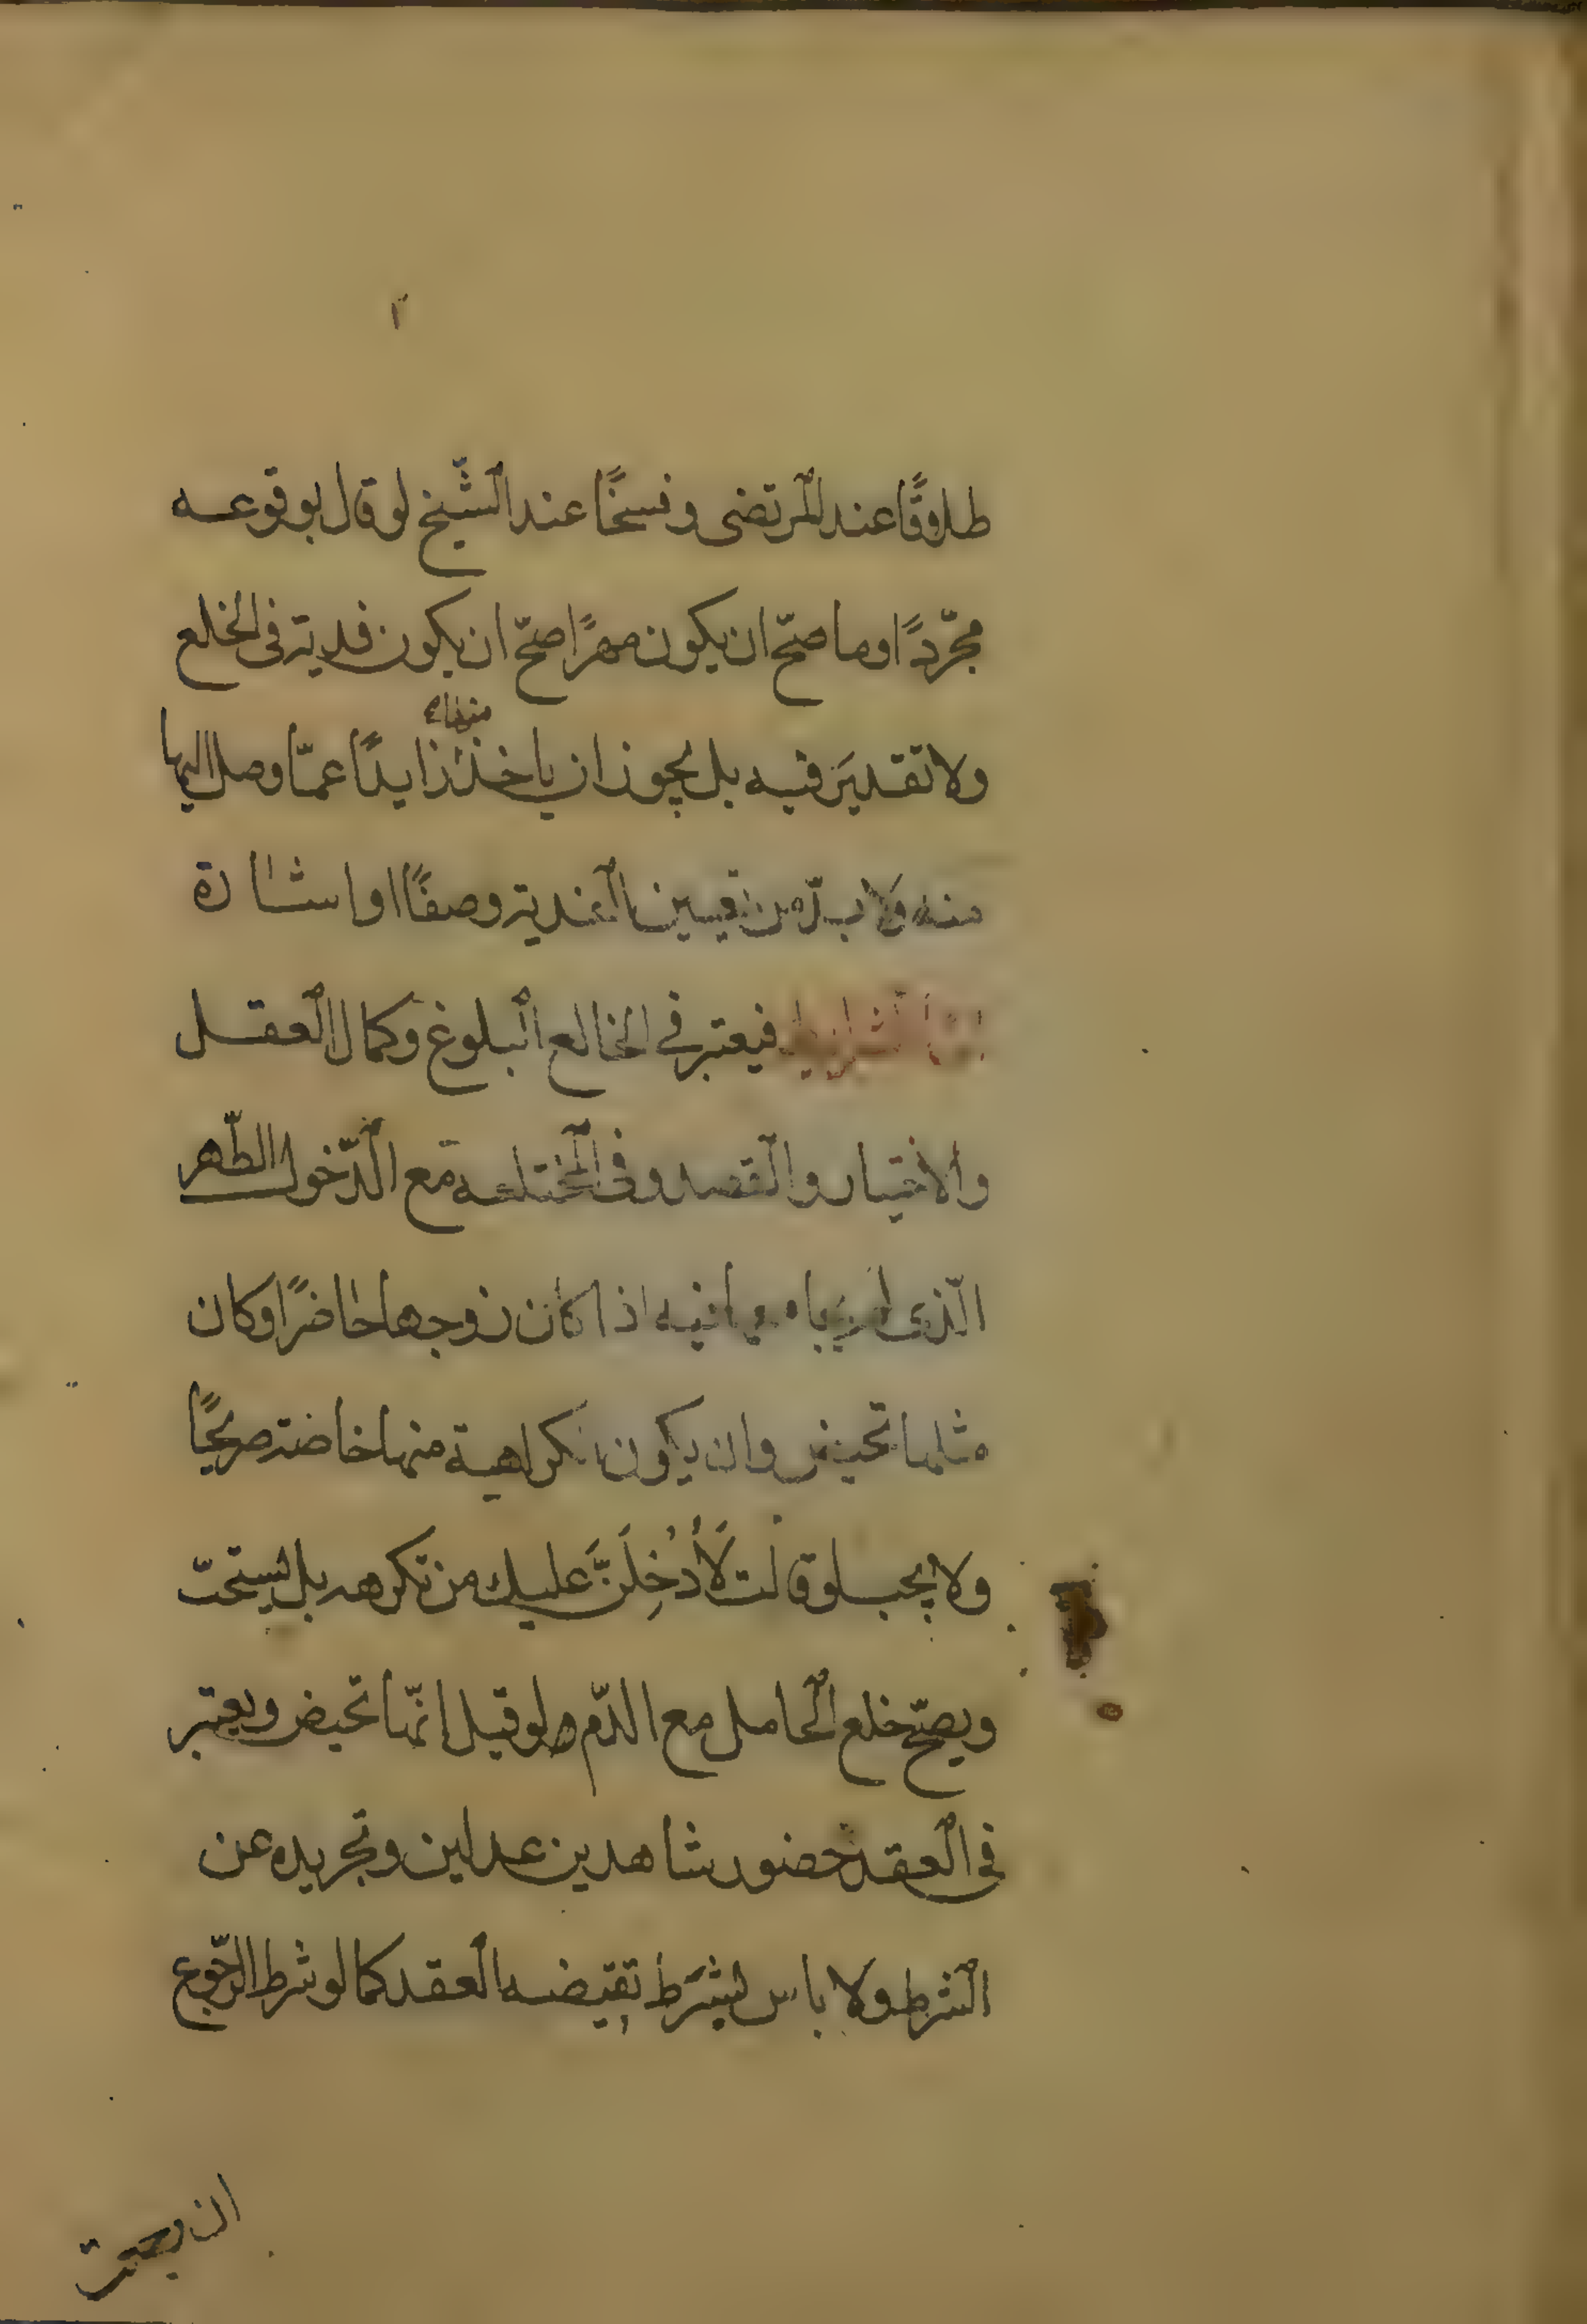 طلاقًا عند المرتضى وفسخًا عند الشّيخ لو قال بوقوعه
مجّردًا وما صحّ ان يكون مهرًا صحّ ان يكون فدية فى الخلع
ولا تقديرَ فيه بل يجوز ان ياخذ منها زايدًا عمّا وصل اليها
منه ولا بدّ من تعيين الفدية وصفًا او اشارة
امّا الشرايط فيعتبر فى الخالع البلوغ وكمال العقل
والاختيار والقصد وفى المختلعة مع الدّخول الطّهر
الّذى لم يجامعها فيه اذا كان زوجها حاضرًا وكان
مثلها تحيض وان يكون الكراهية منها خاصة صريحًا
ولا يجب لو قالت لَأُدْخِلَنَّ عليك من تكرهه بل يستحبّ
ويصحّ خلع الحامل مع الدّم ولو قيل انّها تحيض ويعتبر
فى العقد حضور شاهدين عدلين وتجريده عن
الشرط ولا باس بشرط تقيضه العقد كما لو شرط الرّجوع
ان رجعت